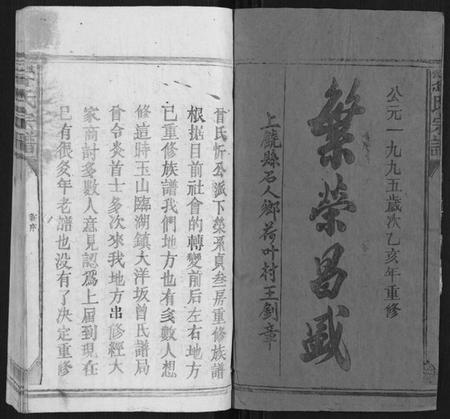 公元一九九五歲次乙亥年重修
繁榮昌盛
上饒縣石人鄉荷叶村王劍章
曾氏忻公派下榮系貞叁房重修族譜
根据目前社會的轉變前后左右地方
已重修族譜我們地方也有多數人想
修這時玉山臨湖鎮大洋坂曾氏譜局
曾令炎首士多次來我地方出修經大
家商討多數人意見認爲上屆到現在
已有很多年老譜也没有了决定重修
新序
氏宗譜
氏宗譜